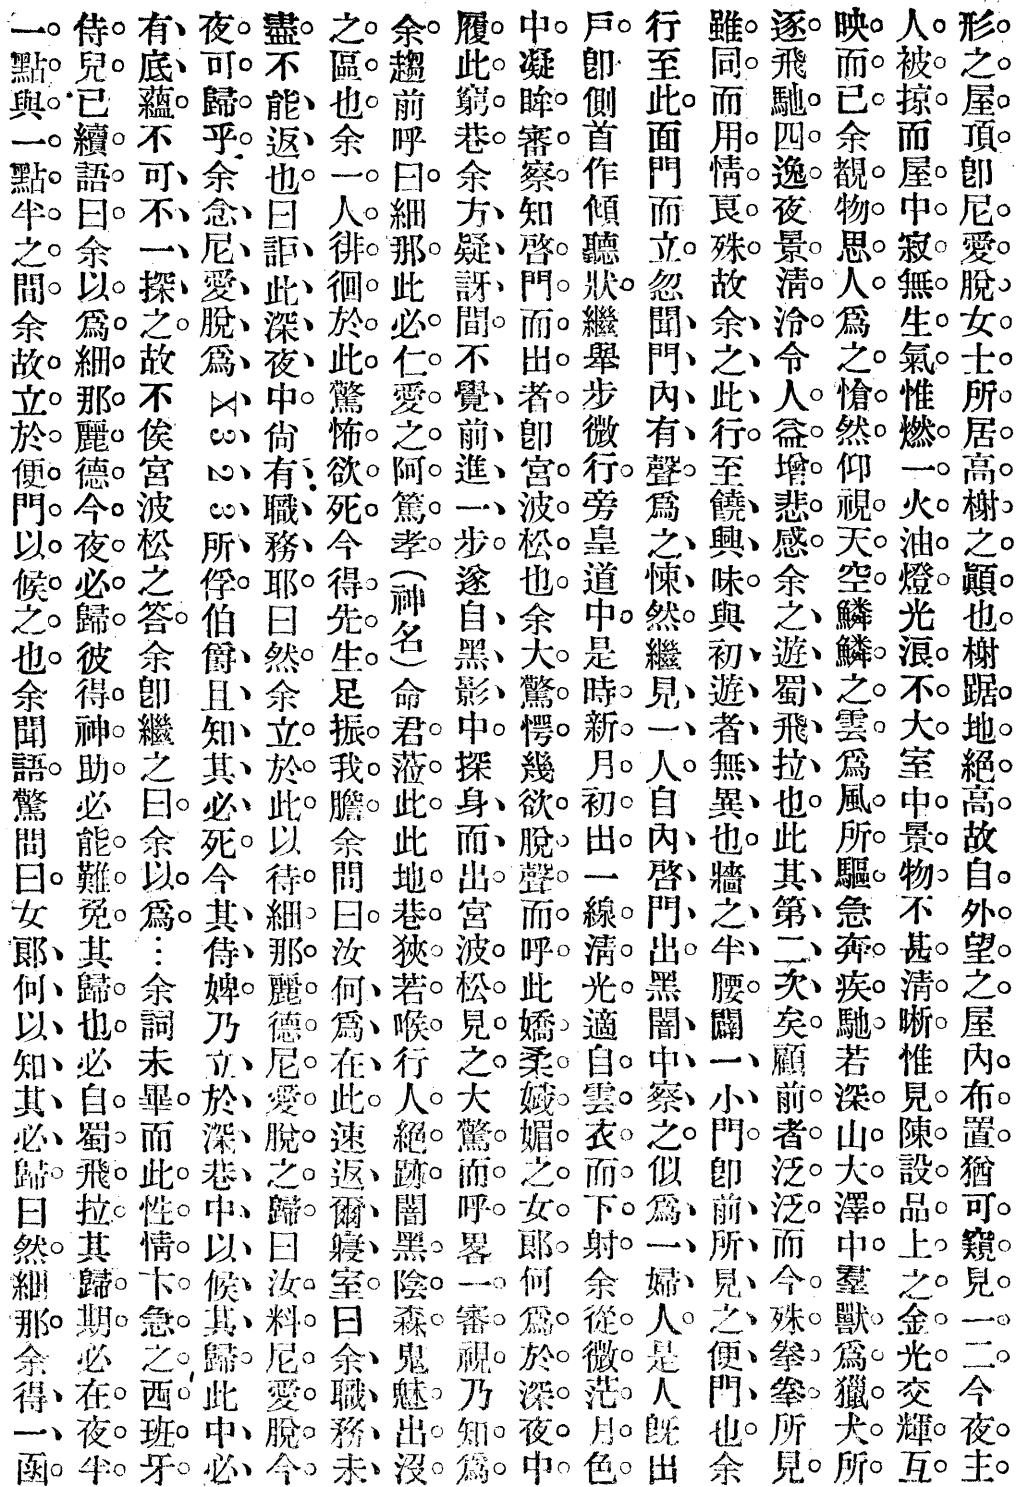 形之屋頂卽尼愛脫女士所居高榭之顚也榭踞地絕高故自外望之屋內布置猶可窺見一二今夜主
人被掠而屋中寂無生氣惟燃一火油燈光浪不大室中景物不甚淸晰惟見陳設品上之金光交輝互
映而已余覩物思人爲之愴然仰視天空鱗鱗之雲爲風所驅急奔疾馳若深山大澤中羣獸爲獵犬所
逐飛馳四逸夜景淸泠令人益增悲感余之遊蜀飛拉也此其第二次矣顧前者泛泛而今殊拳拳所見
雖同而用情良殊故余之此行至饒興味與初遊者無異也牆之半腰闢一小門卽前所見之便門也余
行至此面門而立忽聞門內有聲爲之悚然繼見一人自內啓門出黑闇中察之似爲一婦人是人旣出
戶卽側首作傾聽狀繼舉步微行旁皇道中是時新月初出一線淸光適自雲衣而下射余從微茫月色
中凝眸審察知啓門而出者卽宮波松也余大驚愕幾欲脫聲而呼此嬌柔娥媚之女郞何爲於深夜中
履此窮巷余方疑訝間不覺前進一步遂自黑影中探身而出宮波松見之大驚而呼畧一審視乃知爲
余趨前呼曰細那此必仁愛之阿篤孝(神名)命君蒞此此地巷狹若喉行人絕跡闇黑陰森鬼魅出沒
之區也余一人徘徊於此驚怖欲死今得先生足振我膽余問曰汝何爲在此速返爾寢室曰余職務未
盡不能返也曰詎此深夜中尙有職務耶曰然余立於此以待細那麗德尼愛脫之歸曰汝料尼愛脫今
夜可歸乎余念尼愛脫爲X323所俘伯爵且知其必死今其侍婢乃立於深巷中以候其歸此中必
有底蘊不可不一探之故不俟宮波松之答余卽繼之曰余以爲…余詞未畢而此性情卞急之西班牙
侍兒已續語曰余以爲細那麗德今夜必歸彼得神助必能難免其歸也必自蜀飛拉其歸期必在夜半
一點與一點半之間余故立於便門以候之也余聞語驚問曰女郞何以知其必歸曰然細那余得一函